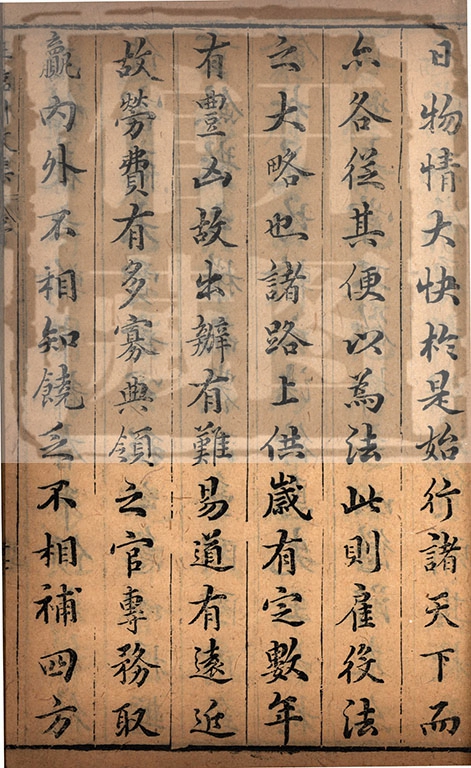 日物情大快於是始行諸天下而
亦各従其便以為法此則雇役法
之大略也諸路上供嵗有定數年
有豊凶故出辦有難易道有遠近
故勞費有多寡典領之官專務取
贏内外不相知饒乏不相補四方